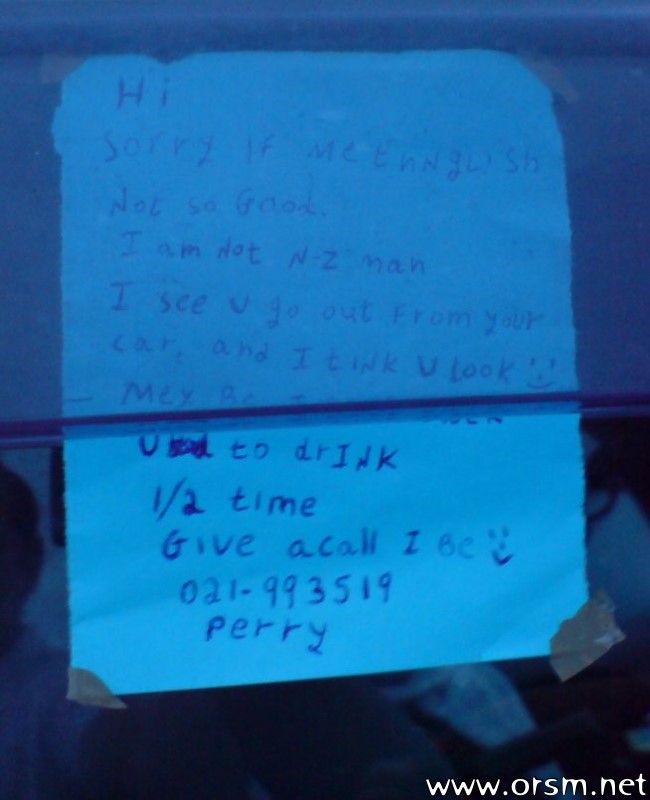 Hi
Sorry IF Me EnNgLish
Not so Good.
I am Not N-Z man
I see U go out From your
car. and I tINK U Look :)
Mey Be I
U to drINK
1/2 time
Give acall I Be :)
021-993519
Perry
www.orsm.net